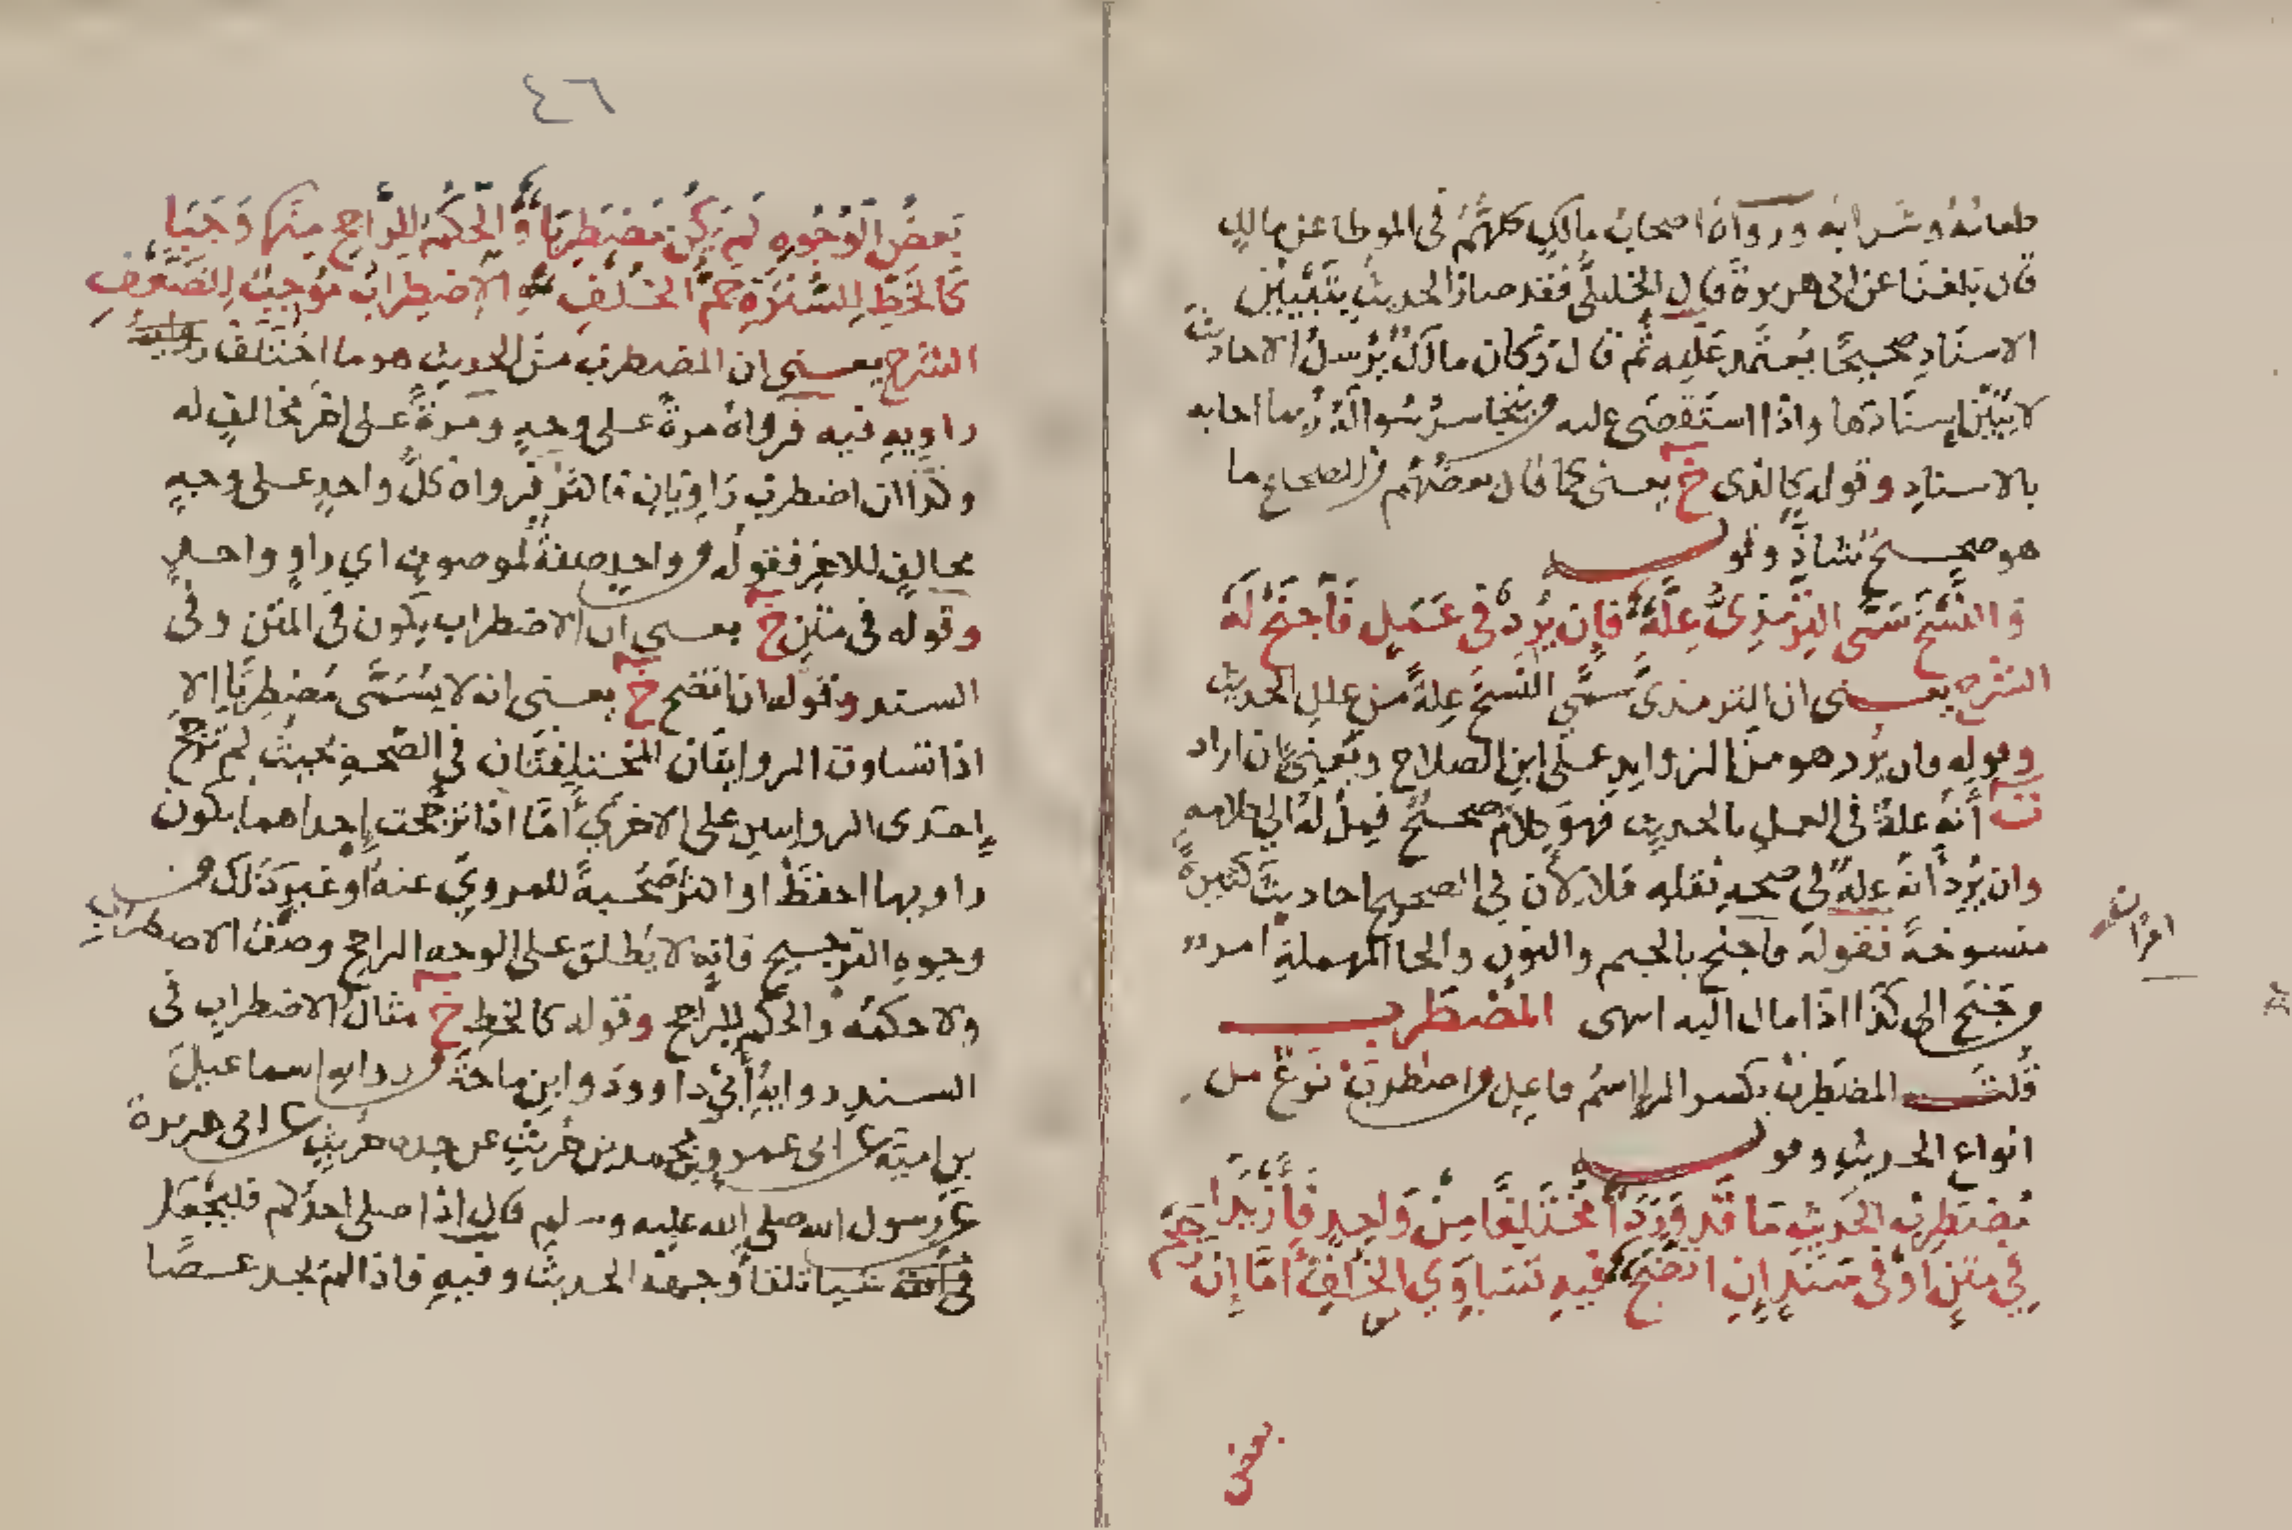 طعامُهُ وشرابُه ورواهُ اصحابُ مالكٍ كلهُّمُ فى الموطا عن مالكٍ
قال بَلغنَا عن ابى هريرةَ قال الخليلىُّ فقد صارَ الحديثُ بتَبْيِينِ
الاسنَادِ صحيحًا يُعتمَد عَليه ثُم قال وَكان مالكٌ يُرْسلُ الاحاديث
لا يُبَيِّنُ إسنَادَهَا واذا استَقْصَى عليه من يتجاسرُ سُوالَهُ ربما اجابه
بالاسنادِ وقوله كالذى خ يعنى كما قال بعضُهُم من الصحاح ما
هو صحيحٌ شاذٌّ وقوله
وَالنَّسْخَ سَمَّى التِّرْمِذِىُّ عِلَّهْ فَإِن يُرِدْ فى عَمَلٍ فَاجْنَحْ لَهْ
الشرح يعنى ان الترمذىَّ سمَّى النَّسخَ عِلةً من علل الحديث
وقوله فان يُرد هو من الزوايدِ على ابنِ الصلاح ويَعنِى ان اراد
ت أَنه علةٌ فى العملِ بالحديثِ فهوَ كلامٌ صحيحٌ فمِلْ لهُ الى كلامهِ
وان يُرِدْ أنهُ علةٌ فى صحهِ نقلهِ فلا لأن فى الصحيح احاديثَ كثيرةً
منسوخةً فقولهُ فاجنح بالجيم والنون والحا المهملةِ امر
من جَنَح الى كذَا اذا مال اليه انتهى المُضْطَرِب
قُلت المضطَرِبُ بكسر الرا اسمُ فاعِل من اضطربَ نوعٌ من
انواع الحديثِ وقوله
مُضْطَرِبُ الحَدِيثِ مَا قَد وَرَدَا مُخْتَلِفًا مِنْ وَاحِدٍ فَأَزْيَدَا
فِي مَتْنٍ اوْ فى سَنَدٍ إِنِ اتَّضَحْ فِيهِ تَسَاوِي الخُلْفِ امَّا إِنْ رَجَحْ
بعض
٤٦
بَعضُ الوُجُوهِ لَمْ يَكُنْ مُضْطَرِبَا وَالحُكْمُ للرَّاجِحِ مِنْهَا وَجَبَا
كَالخَطِّ لِلسُّتْرَةِ جَمُّ الخُلْفِ والاضطِرَابُ مُوجِبٌ لِلضَّعْفِ
الشرح يعنى ان المضطربَ من الحديث هو ما اختَلَف راويه
راوِيهِ فيه فرواهُ مرةً على وجهٍ ومرةً على اخرَ مخالفٍ له
وكذا ان اضطربَ رَاوِيانِ فاكثرُ فرواهُ كلُّ واحدٍ على وجهٍ
مخالفٍ للاخرِ فقوله من واحدٍ صفةٌ لموصوفٍ اي راوٍ واحدٍ
وقوله فى متنٍ خ يعنى ان الاضطراب يكون فى المتن وفى
السند وقوله ان اتضح خ يعنى انه لا يُسَمَّى مُضطرِبًا إلا
اذا تساوت الروايتَان المختلِفتَانِ في الصّحهِ بحيثُ لم تَرْجح
إحدى الروايتين على الاخرَي أمَّا اذا ترجّحت إحداهما بكون
راويها احفظَ او اكثرَ صُحْبهً للمرويِّ عنه أو غيرِ ذَلك من
وجوهِ الترجيح فانه لا يُطلق على الوجهِ الراجح وصْفُ الاضطرابِ
ولا حكمُه والحكم للراجح وقوله كالخطِ خ مثالُ الاضطرابِ فى
السندِ روايهُ أبى داوودَ وابنِ ماجةَ من روايه اسماعيلَ
بن اميّهَ عن ابى عمرو بن محمد بن حُريثٍ عن جده حُريثٍ عن ابى هريرة
عن رسول الله صلى الله عليه وسلم قال إذا صلى احدُكم فليَجْعَل
شيا تلقا وجهه الحديثَ وفيهِ فاذا لم يجد عصًا